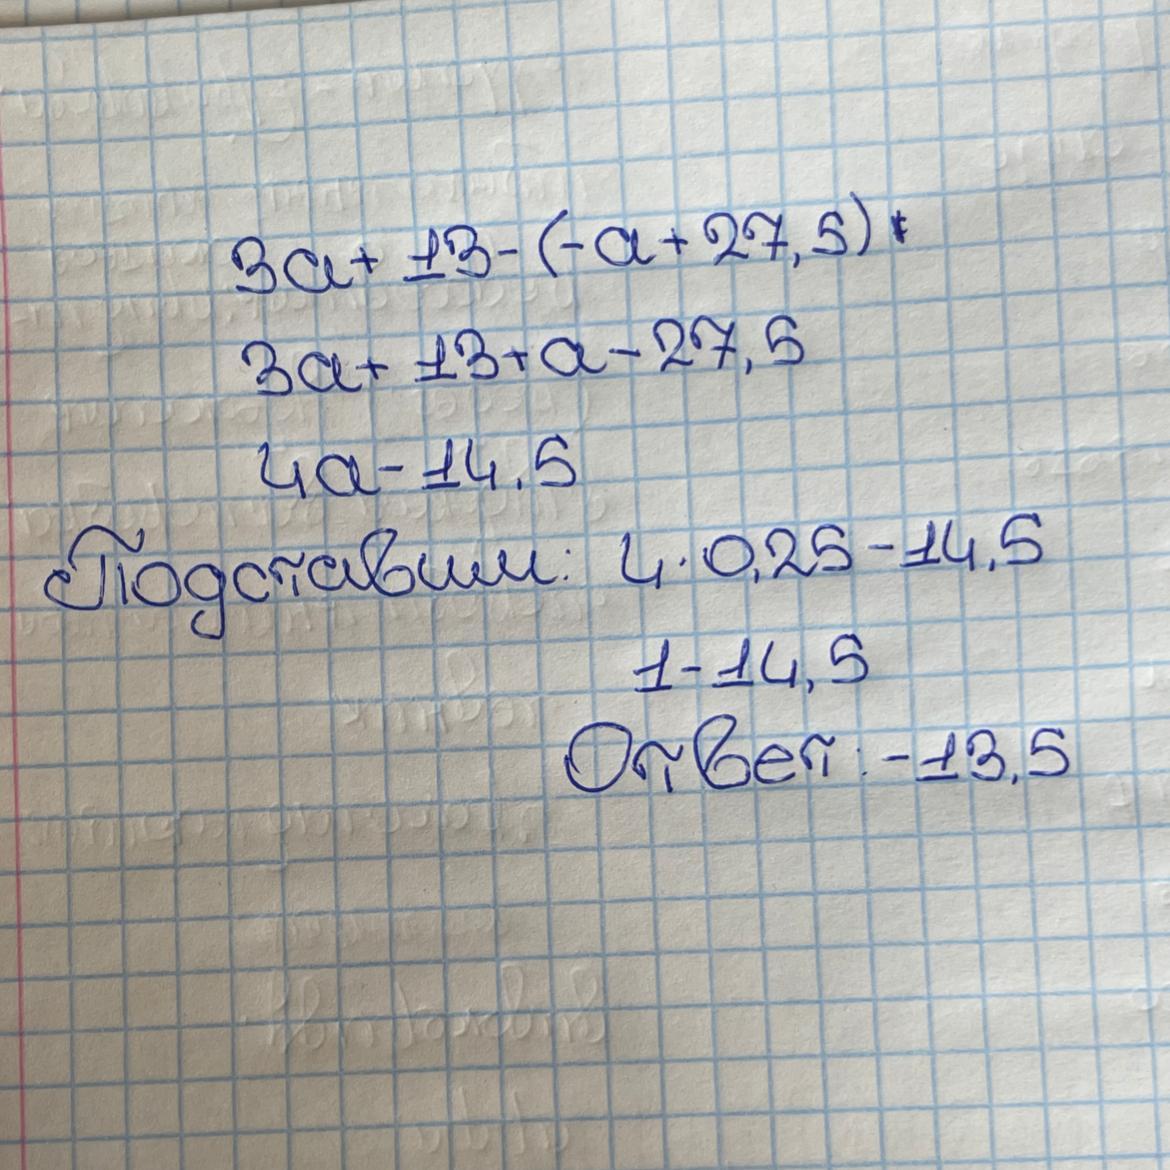 3a+ 13-(-a+27,5)
3a+ 13+a-27,5
4a-14.5
Подставим: 4·0,25-14,5
1-14,5
Ответ: -13,5